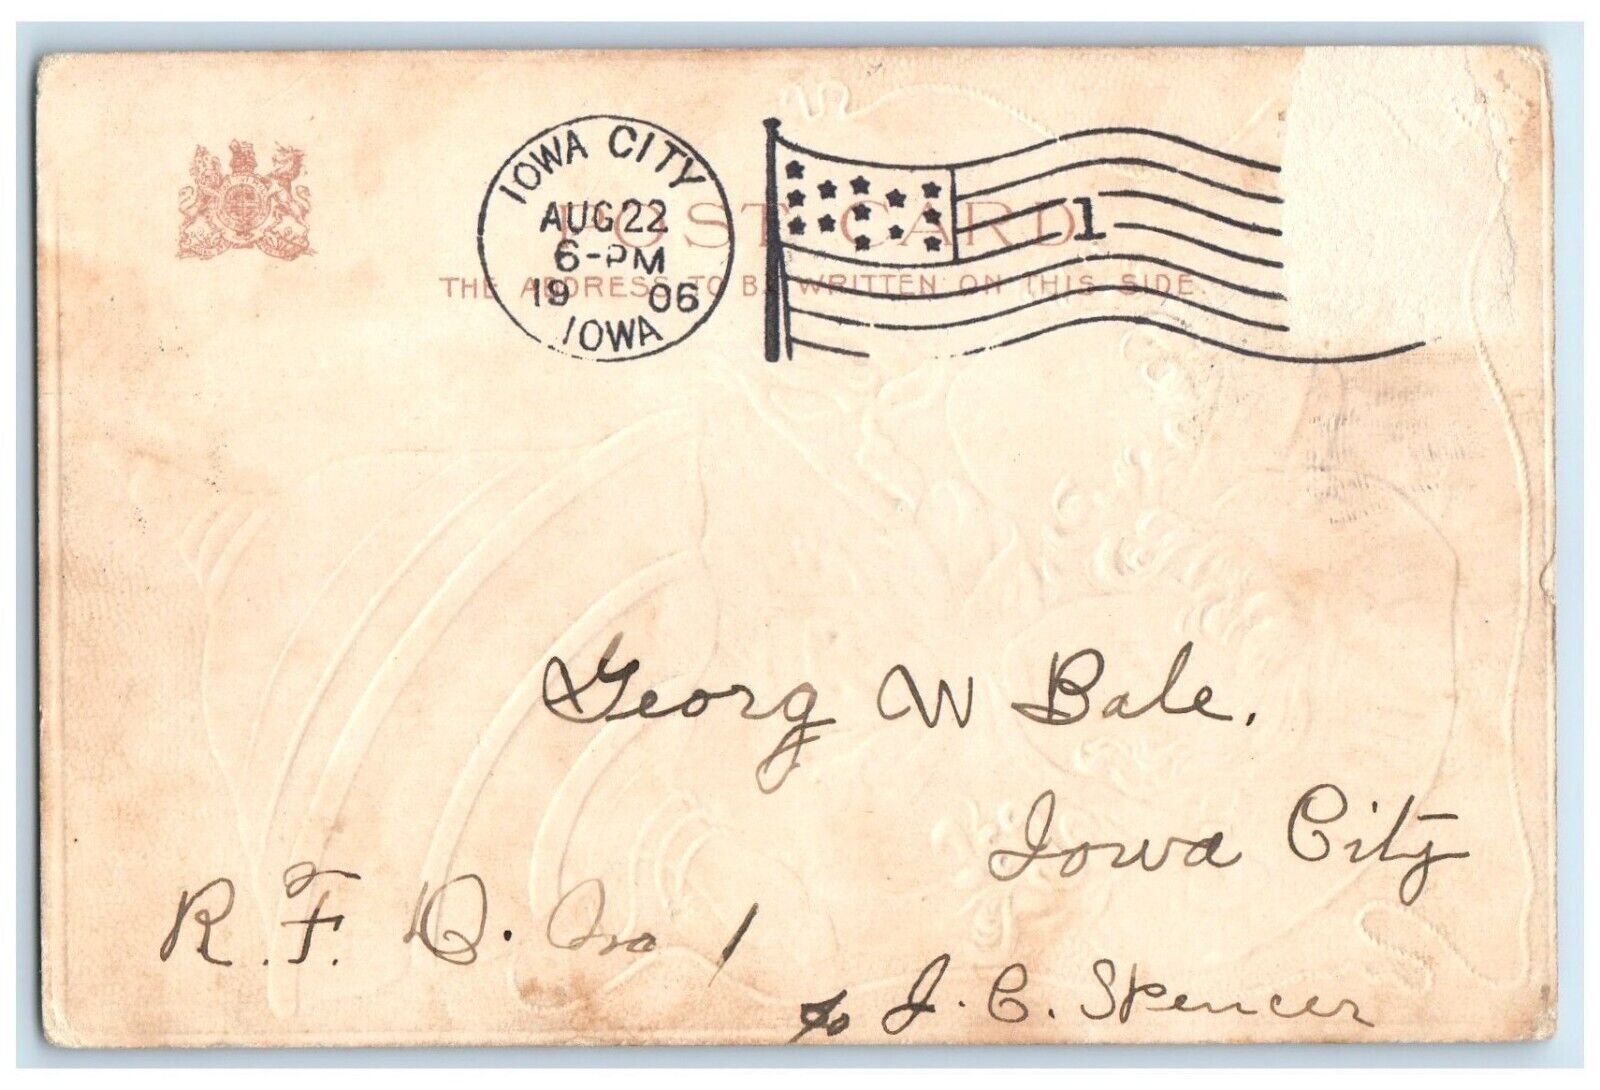 IOWA CITY
AUG 22
6-PM
19 06
IOWA
1
POST CARD
THE ADDRESS TO BE WRITTEN ON THIS SIDE.
Georg W Bale.
Iowa City
R. F. D. No 1
c/o J. C. Spencer